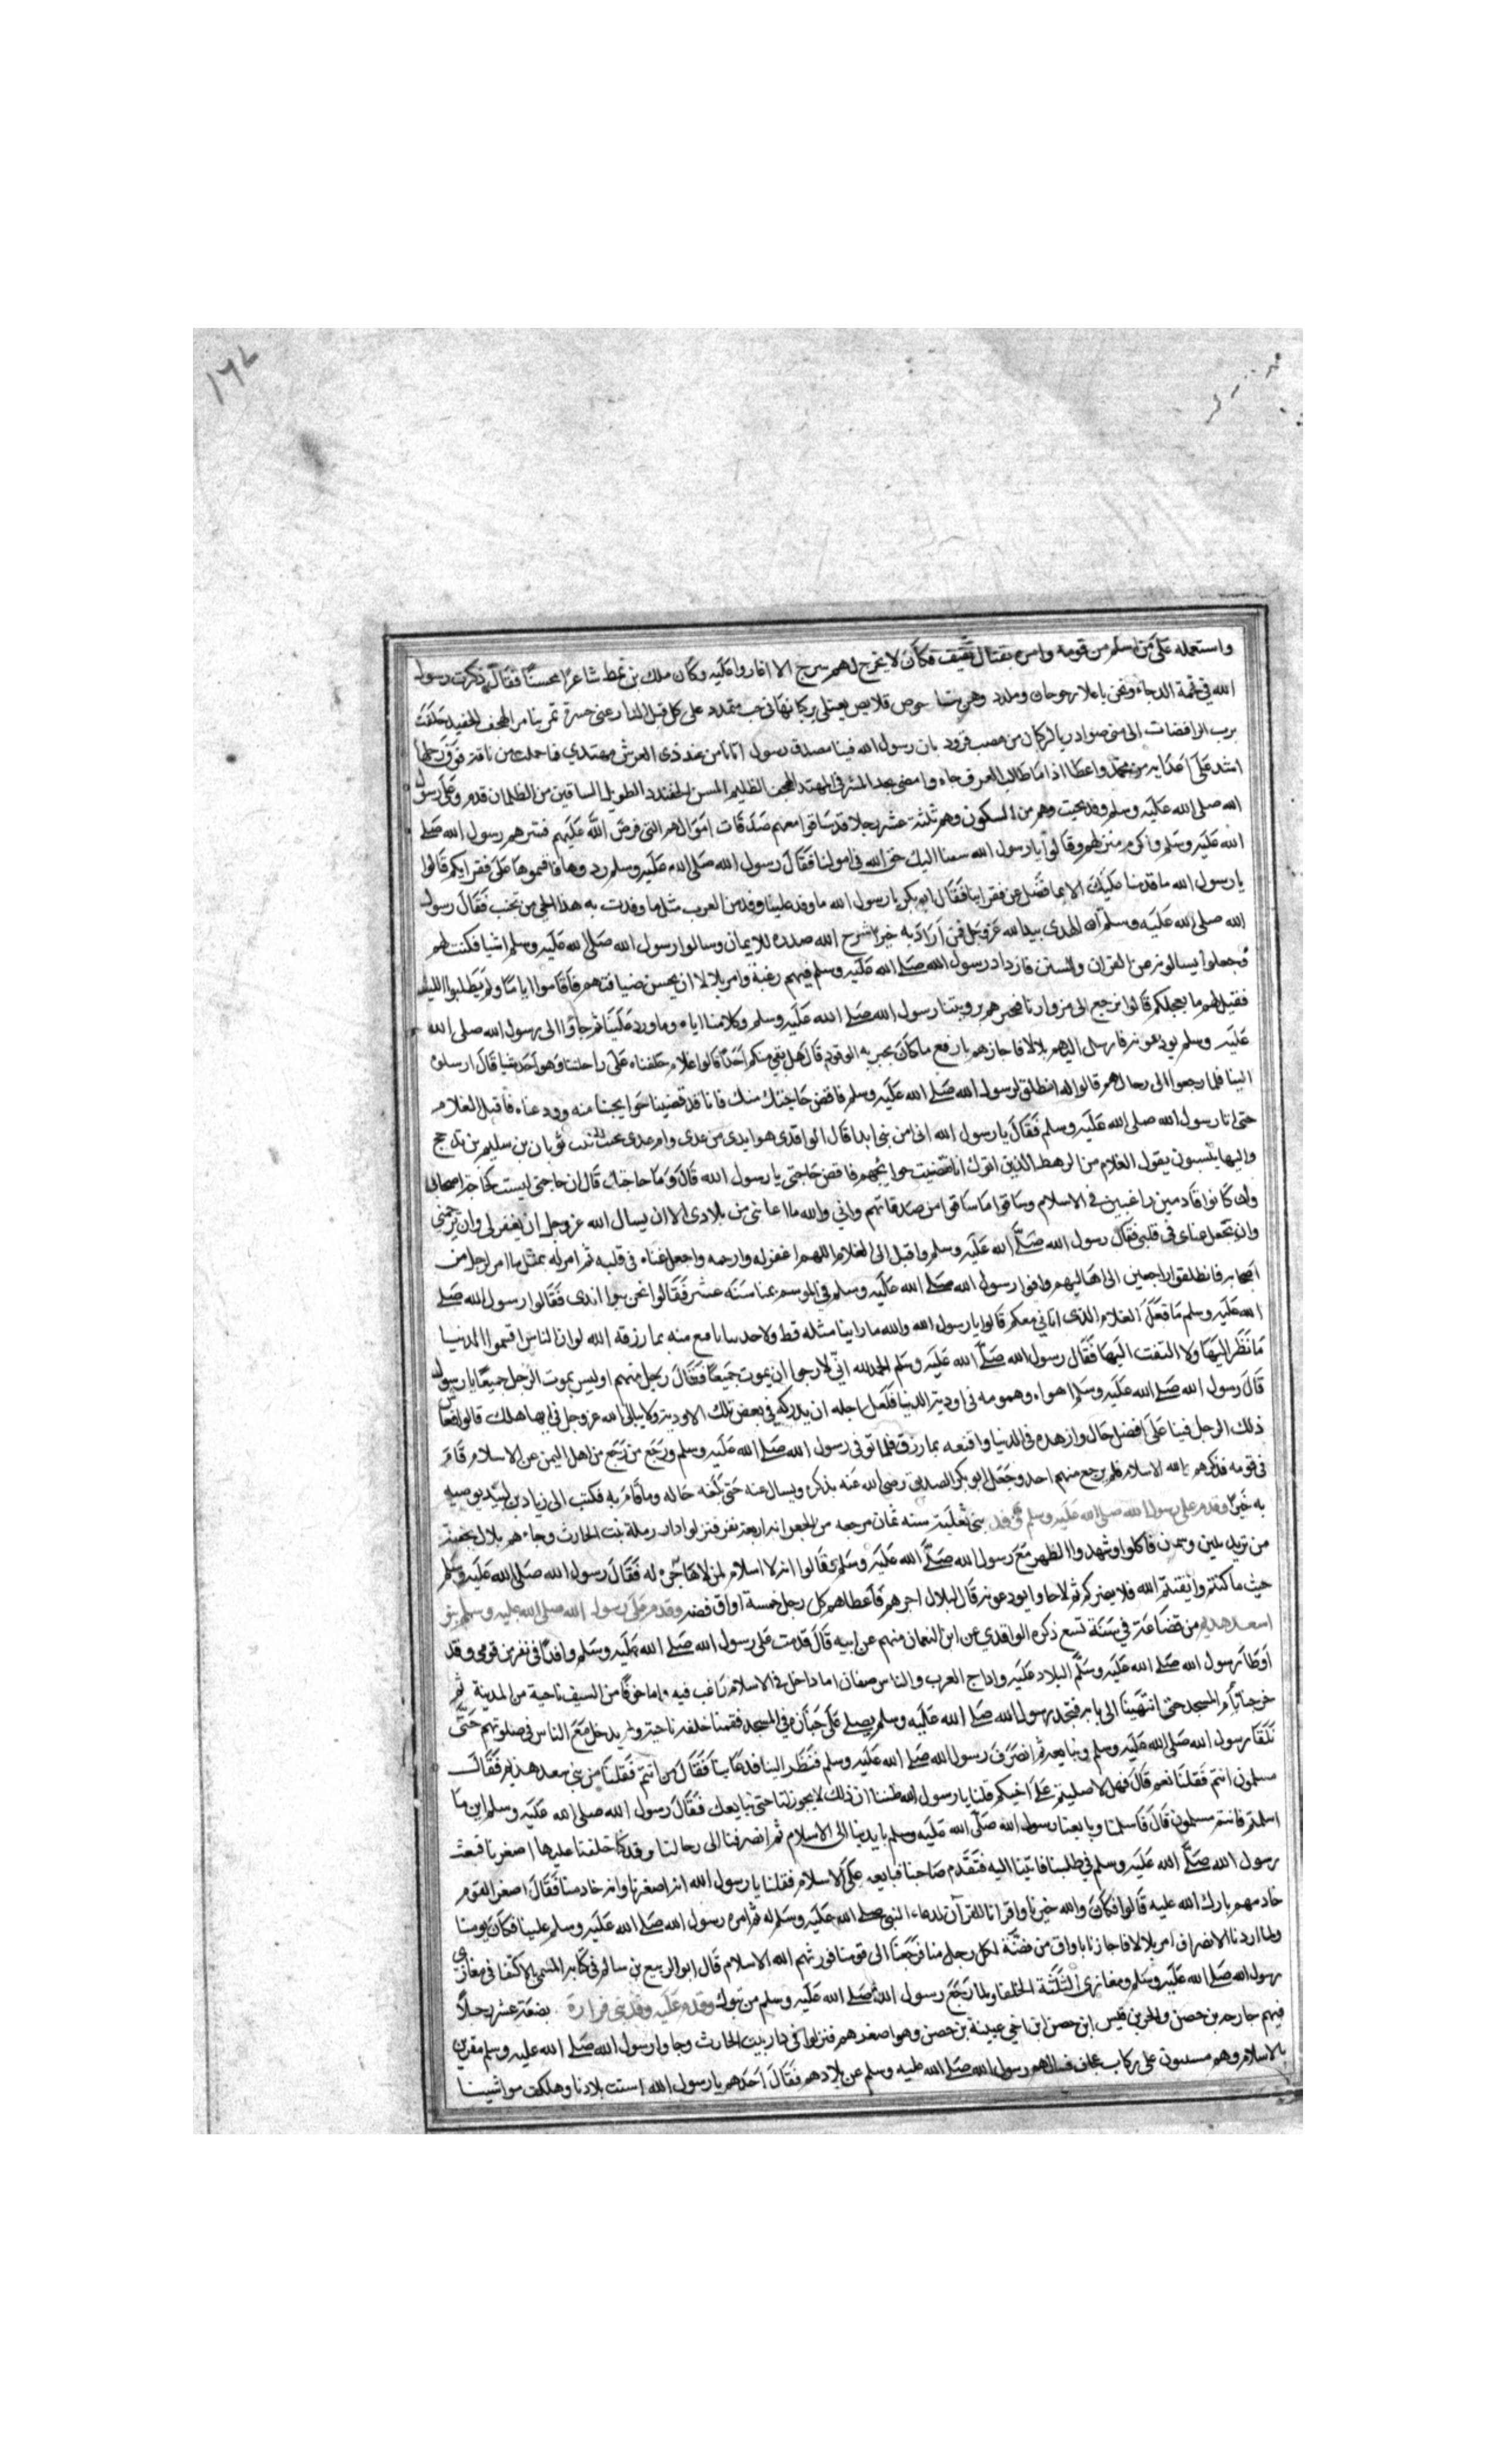 ١٦٧
واستعمله على من اسلم من قومه وامره بقتال ثقيف فكان لا يخرج لهم سرح الا اغاروا عليه وكان ملك بن نمط شاعرا محسنا فقال ذكرت رسول
الله في فحمة الدجاء ونحن باعلا رحرحان وصلدد وهن بنا خوص قلايص يعتلي بركبانها في لاحب متمدد على كل قبل الذراعين جسرة تمر بنا مر الهجف الخفيدد حلفت
برب الراقصات الى منى صوادر بالركبان من هضب قردد بان رسول الله فينا مصدق رسول اتانا من عند ذى العرش مهتدي فما حملت من ناقة فوق رحلها
اشد على اعدايه من محمد واعطا اذا ما طالب العرف جاءه وامضى بحد المشرفي المهند الهجف الظليم المسن الخفيدد الطويل الساقين من الظلمان قدم وعلى رسول
الله صلى الله عليه وسلم وفد تجيب وهم من السكون وهم ثلثة عشر رجلا قد ساقوا معهم صدقات اموالهم التي فرض الله عليهم فسرهم رسول الله صلى
الله عليه وسلم واكرم منزلهم وقالوا يا رسول الله سقنا اليك حق الله في اموالنا فقال رسول الله صلى الله عليه وسلم ردوها فاقسموها على فقرايكم قالوا
يا رسول الله ما قدمنا عليك الا بما فضل عن فقراينا فقال ابو بكر يا رسول الله ما وفد علينا وفد من العرب مثل ما وفدت به هذا الحي من تجيب فقال رسول
الله صلى الله عليه وسلم ان الهدى بيد الله عز وجل فمن اراد به خيرا شرح الله صدره للايمان وسالوا رسول الله صلى الله عليه وسلم اشيا فكتب لهم
وجعلوا يسالونه عن القران والسنن فازداد رسول الله صلى الله عليه وسلم فيهم رغبة وامر بلالا ان يحسن ضيافتهم فاقاموا اياما ولم يطلبوا اللبث
فقيل لهم ما يعجلكم قالوا نرجع الى من وارنا فنخبرهم بروبتنا رسول الله صلى الله عليه وسلم وكلامنا اياه وما ورد علينا ثم جاوا الى رسول الله صلى الله
عليه وسلم يودعونه فارسل اليهم بلالا فاجازهم بارفع ما كان يجيز به الوفود قال هل بقي منكم احد قالوا غلام خلفناه على رحالنا وهو احدثنا قال ارسلوه
الينا فلما رجعوا الى رحالهم قالوا له انطلق لرسول الله صلى الله عليه وسلم فاقض حاجتك منه فانا قد قضينا حوايجنا منه وودعناه فاقبل الغلام
حتى اتا رسول الله صلى الله عليه وسلم فقال يا رسول الله اني من بني ابدا قال الواقدي هو ايدى من عدى وام عدى تجيب بنت ثوبان بن سليم بن مذحج
واليها ينسبون يقول الغلام من الرهط الذين اتوك انفا فقضيت حوايجهم فاقض حاجتي يا رسول الله قال وما حاجتك قال ان حاجتي ليست كحاجة اصحابي
وان كانوا قادمين راغبين في الاسلام وساقوا ما ساقوا من صدقاتهم واني والله ما اعملني من بلادى الا ان يسال الله عز وجل ان يغفر لي وان يرحمني
وان يجعل غناى في قلبي فقال رسول الله صلى الله عليه وسلم واقبل الى الغلام اللهم اغفر له وارحمه واجعل غناه في قلبه ثم امر له بمثل ما امر لرجل من
اصحابه فانطلقوا راجعين الى اهاليهم وافوا رسول الله صلى الله عليه وسلم في الموسم بمنا سنة عشر فقالوا نحن بنوا ابدى فقالوا رسول الله صلى
الله عليه وسلم ما فعل الغلام الذي اتاني معكم قالوا يا رسول الله والله ما راينا مثله قط ولا حدثنا باقنع منه بما رزقه الله لو ان الناس اقتسموا الدنيا
ما نظر اليها ولا التفت اليها فقال رسول الله صلى الله عليه وسلم الحمد لله اني لارجوا ان يموت جميعا فقال رجل منهم او ليس يموت الرجل جميعا يا رسول
قال رسول الله صلى الله عليه وسلم اهواءه وهمومه في اودية الدنيا فلعل اجله ان يدركه في بعض تلك الاودية ولا يبالي الله عز وجل في ايها هلك قالوا فعاش
ذلك الرجل فينا على افضل حال وازهده في الدنيا واقنعه بما رزق فلما توفى رسول الله صلى الله عليه وسلم ورجع من رجع من اهل اليمن عن الاسلام قام
في قومه فذكرهم بالله الاسلام فلم يرجع منهم احد وجعل ابو بكر الصديق رضي الله عنه يذكره ويسال عنه حتى بلغه حاله وما قام به فكتب الى زياد بن لبيد يوصيه
به خيرا وقدم على رسول الله صلى الله عليه وسلم وفد بني ثعلبة سنه ثمان مرجعه من الجعرانه اربعة نفر فنزلوا دار رملة بنت الحارث وجاءهم بلال بجفنة
من ثريد بلبن وسمن فاكلوا وشهدوا الظهر مع رسول الله صلى الله عليه وسلم وقالوا انه لا اسلام لمن لا هجرة له فقال رسول الله صلى الله عليه وسلم
حيث ما كنتم واتقيتم الله فلا يضركم ثم لاحاوا يودعونه قال لبلال اجزهم فاعطاهم كل رجل خمسة اواق فضه وقدم على رسول الله صلى الله عليه وسلم بنو
سعد هذيم من قضاعة في سنة تسع ذكره الواقدي عن ابن النعمان منهم عن ابيه قال قدمت على رسول الله صلى الله عليه وسلم وافدا في نفر من قومى وقد
اوطا رسول الله صلى الله عليه وسلم البلاد عليه واداخ العرب والناس صنفان اما داخل في الاسلام راغب فيه واما خوفا من السيف ناحية من المدينة ثم
خرجنا نوم المسجد حتى انتهينا الى بابه فنجد رسول الله صلى الله عليه وسلم يصلي على جنازة في المسجد فقمنا خلفه ناحية ولم يدخل مع الناس في صلوتهم حتى
نلقا رسول الله صلى الله عليه وسلم ونبايعه ثم انصرف رسول الله صلى الله عليه وسلم فنظر الينا فدعا بنا فقال من انتم فقلنا من بني سعد هذيم فقال
مسلمون انتم فقلنا نعم قال فهلا صليتم على اخيكم قلنا يا رسول الله ظننا ان ذلك لا يجوز لنا حتى نبايعك فقال رسول الله صلى الله عليه وسلم اين ما
اسلمتم فانتم مسلمون قال فاسلمنا وبايعنا رسول الله صلى الله عليه وسلم بايدينا الى الاسلام ثم انصرفنا الى رحالنا وقد كنا خلفنا عليها اصغرنا فبعث
رسول الله صلى الله عليه وسلم في طلبنا فاتينا اليه فتقدم صاحبنا فبايعه على الاسلام فقلنا يا رسول الله انه اصغرنا وانه خادمنا فقال اصغر القوم
خادمهم بارك الله عليه قالوا فكان والله خيرنا واقرانا للقرآن لدعاء النبي صلى الله عليه وسلم له ثم امره رسول الله صلى الله عليه وسلم علينا فكان يومنا
ولما اردنا الانصراف امر بلالا فاجازنا باواق من فضة لكل رجل منا فرجعنا الى قومنا فورثهم الله الاسلام قال ابو الربيع بن سالم في كتابه المسمى بالاكتفا في مغازى
رسول الله صلى الله عليه وسلم ومغازى الثلثة الخلفا ولما رجع رسول الله صلى الله عليه وسلم من تبوك وقدم عليه وفد بني فزارة بضعة عشر رجلا
فيهم خارجه بن حصن والحر بن قيس ابن حصن ابن اخي عيينة بن حصن وهو اصغرهم فنزلوا في دار بنت الحارث وجاوا رسول الله صلى الله عليه وسلم مقرين
بالاسلام وهم مسنتون على ركاب عجاف فسالهم رسول الله صلى الله عليه وسلم عن بلادهم فقال احدهم يا رسول الله اسنتت بلادنا وهلكت مواشينا